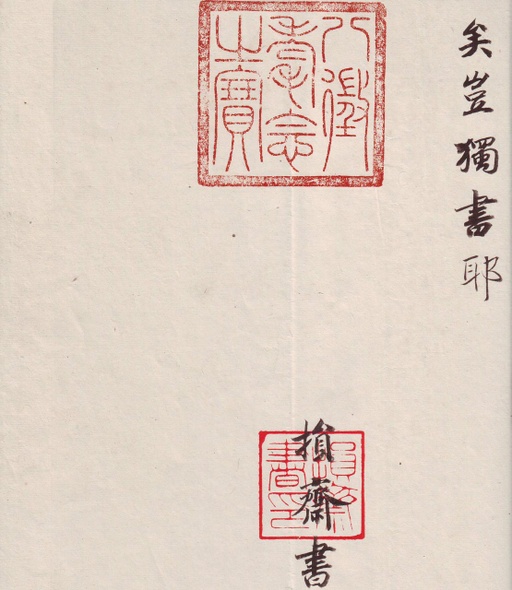 矣豈獨書耶
八徵
耄念
之寶
損齋書
損齋
書印